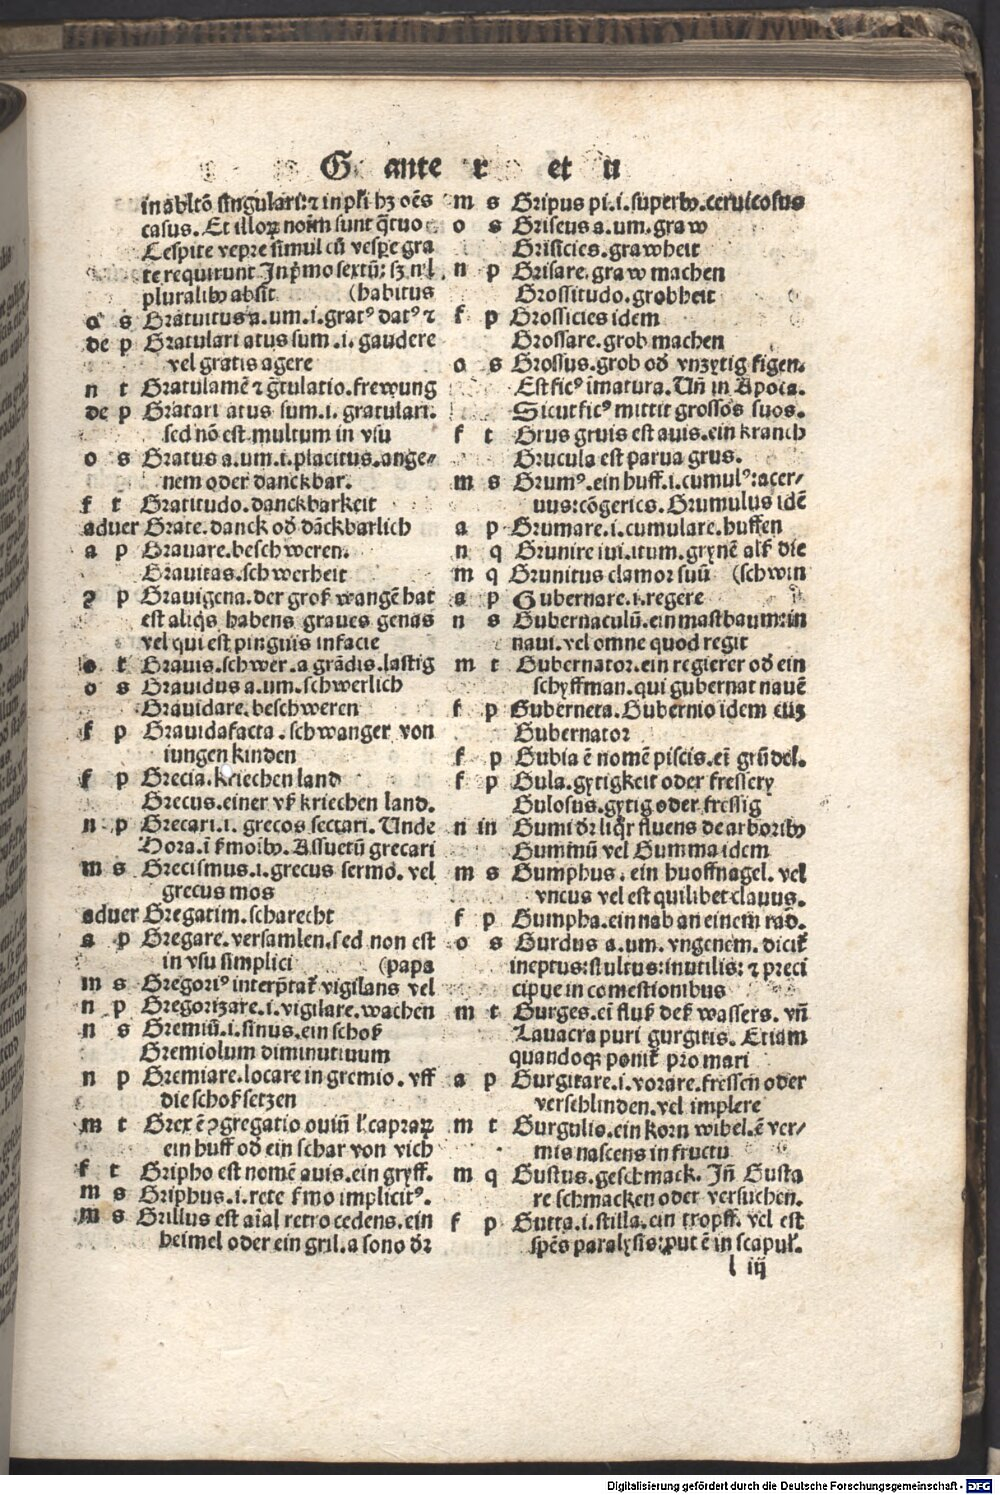 G ante r et u
in abltō singulari: ⁊ in pl̄i hꝫ oēs
casus. Et illoꝝ noīm sunt q̄tuor
Cespite vepre simul cū vespe gra
te requirunt In pmo sextū: sꝫ n̄ l.
pluralibꝰ absit (habitus
o s Gratuitus a.um.i.gratꝰ datꝰ ⁊
de p Gratulari atus sum.i.gaudere
vel gratis agere
n t Gratulamē ⁊ g̃tulatio.frewung
de p Gratari atus sum.i.gratulari.
sed nō est multum in vsu
o s Gratus a.um.i.placitus.ange⸗
nem oder danckbar.
f t Gratitudo.danckbarkeit
aduer Grate.danck oð dāckbarlich
a p Grauare.beschweren.
Grauitas.schwerheit
ꝯ p Grauigena.der groß wangē hat
est aliq̄s habens graues genas
vel qui est pinguis in facie
o t Grauis.schwer.a grādis.lastig
o s Grauidus a.um.schwerlich
Grauidare.beschweren
f p Grauidafacta.schwanger von
iungen kinden
f p Grecia.kriechen land
Grecus.einer vß kriechen land.
n p Grecari.i.grecos sectari.Unde
Hora.ī ẜmoībꝰ.Assuetū grecari
m s Grecismus.i.grecus sermo.vel
grecus mos
aduer Gregatim.scharecht
a p Gregare.versamlen.sed non est
in vsu simplici (papa
m s Gregoriꝰ interp̄tat̄ vigilans vel
n p Gregorizare.i.vigilare.wachen
n s Gremiū.i.sinus.ein schoß
Gremiolum diminutiuum
n p Gremiare.locare in gremio.vff
die schoß setzen
m t Grex ē ꝯgregatio ouiū ł capraꝝ
ein huff oð ein schar von vich
f t Gripho est nomē auis.ein gryff.
m s Griphus.i.rete ẜmo implicitꝰ.
m s Grillus est aīal retro cedens.ein
heimel oder ein gril.a sono ðr
m s Gripus pi.i.superbꝰ.ceruicosus
o s Griseus a.um.graw
Grisicies.grawheit
n p Grisare.graw machen
Grossitudo.grobheit
f p Grossicies idem
Grossare.grob machen
o s Grossus.grob oð vnzytig figen.
Est ficꝰ imatura.Uñ in Apoca.
Sicut ficꝰ mittit grossos suos.
f t Grus gruis est auis.ein kranch
Grucula est parua grus.
m s Grumꝰ.ein huff.i.cumulꝰ:acer⸗
uus:cōgeries.Grumulus idē
a p Grumare.i.cumulare.huffen
n q Grunire iui.itum.grynē alß die
m q Grunitus clamor suū (schwin
a p Gubernare.i.regere
n s Gubernaculū.ein mastbaum:in
naui.vel omne quod regit
m t Gubernator.ein regierer oð ein
schyffman.qui gubernat nauē
f p Guberneta.Gubernio idem cuꝫ
Gubernator
f p Gubia ē nomē piscis.eī grūdel.
f p Gula.gytigkeit oder fressery
Gulosus.gytig oder fressig
n in Gumi ðr liq̄r fluens de arboribꝰ
Gummū vel Gumma idem
m s Gumphus.ein huoffnagel.vel
vncus vel est quilibet clauus.
f p Gumpha.ein nab an einem rad.
o s Gurdus a.um.vngenem.dicit̄
ineptus:stultus:inutilis: ⁊ preci
cipue in comestionibus
m t Gurges.eī fluß deß wassers.vñ
Lauacra puri gurgitis.Etiam
quandoqꝫ ponit̄ pro mari
a p Gurgitare.i.vorare.fressen oder
verschlinden.vel implere
m t Gurgulis.ein korn wibel.ē ver⸗
mis nascens in fructu
m q Gustus.geschmack.Iñ Gusta
re schmacken oder versuchen.
f p Gutta.i.stilla.ein tropff.vel est
spēs paralysis:ꝓut ē in scapuł.
l iij
Digitalisierung gefördert durch die Deutsche Forschungsgemeinschaft - DFG